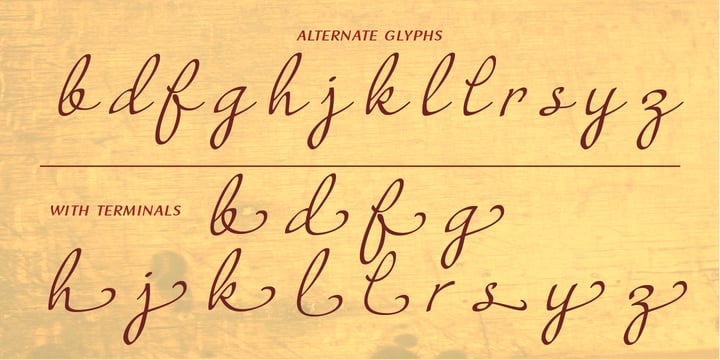 ALTERNATE GLYPHS
b d f g h j k l l r s y z
WITH TERMINALS b d f g
h j k l l r s y z